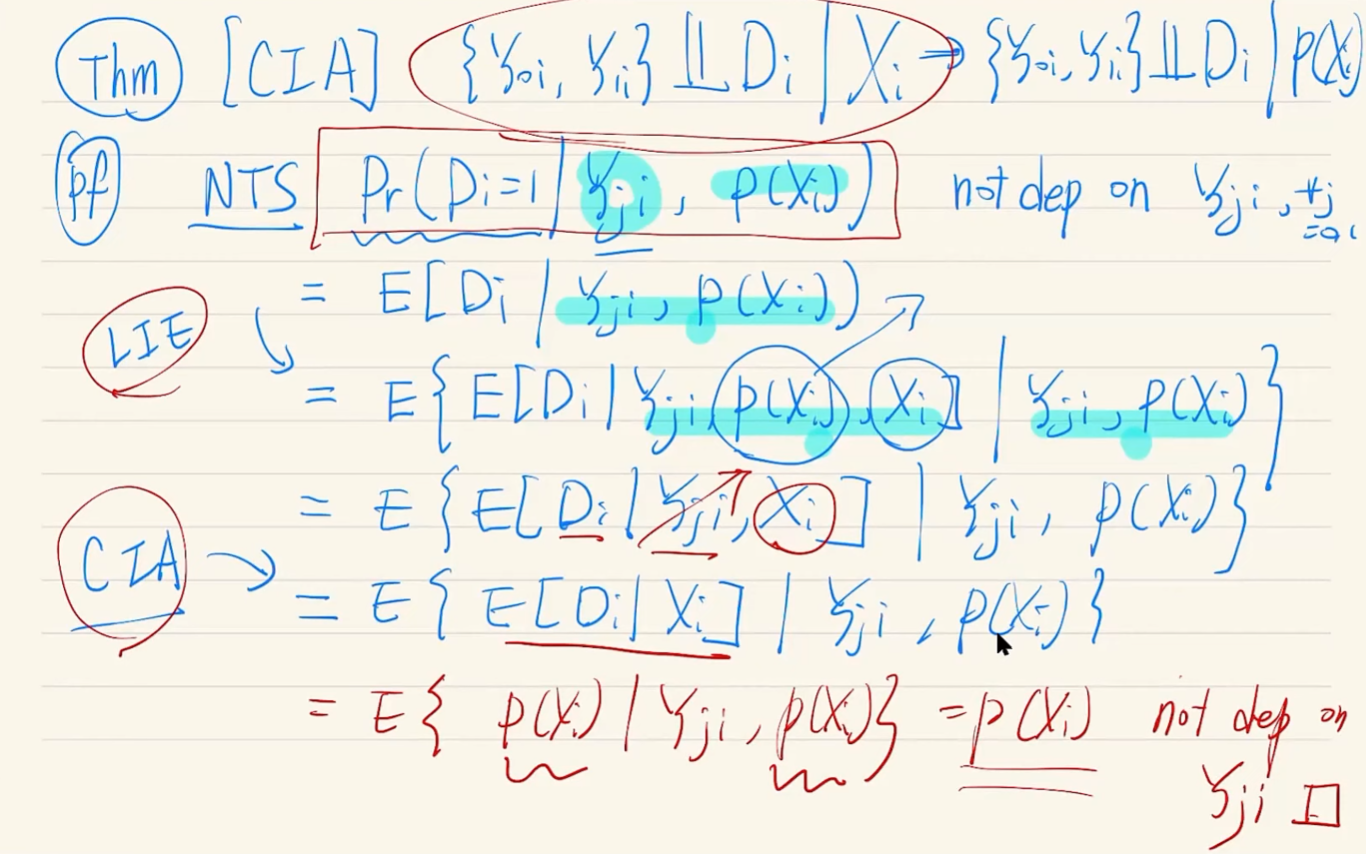 Thm [CIA] {Y₀ᵢ, Y₁ᵢ} ⫫ Dᵢ | Xᵢ ⇒ {Y₀ᵢ, Y₁ᵢ} ⫫ Dᵢ | p(Xᵢ)
pf NTS Pr(Dᵢ=1 | Yⱼᵢ, p(Xᵢ)) not dep on Yⱼᵢ, ∀j =0,1
= E[Dᵢ | Yⱼᵢ, p(Xᵢ))
LIE = E{E[Dᵢ | Yⱼᵢ, p(Xᵢ), Xᵢ] | Yⱼᵢ, p(Xᵢ)}
= E{E[Dᵢ | Yⱼᵢ, Xᵢ] | Yⱼᵢ, p(Xᵢ)}
CIA → = E{E[Dᵢ | Xᵢ] | Yⱼᵢ, p(Xᵢ)}
= E{p(Xᵢ) | Yⱼᵢ, p(Xᵢ)} = p(Xᵢ) not dep on
Yⱼᵢ □